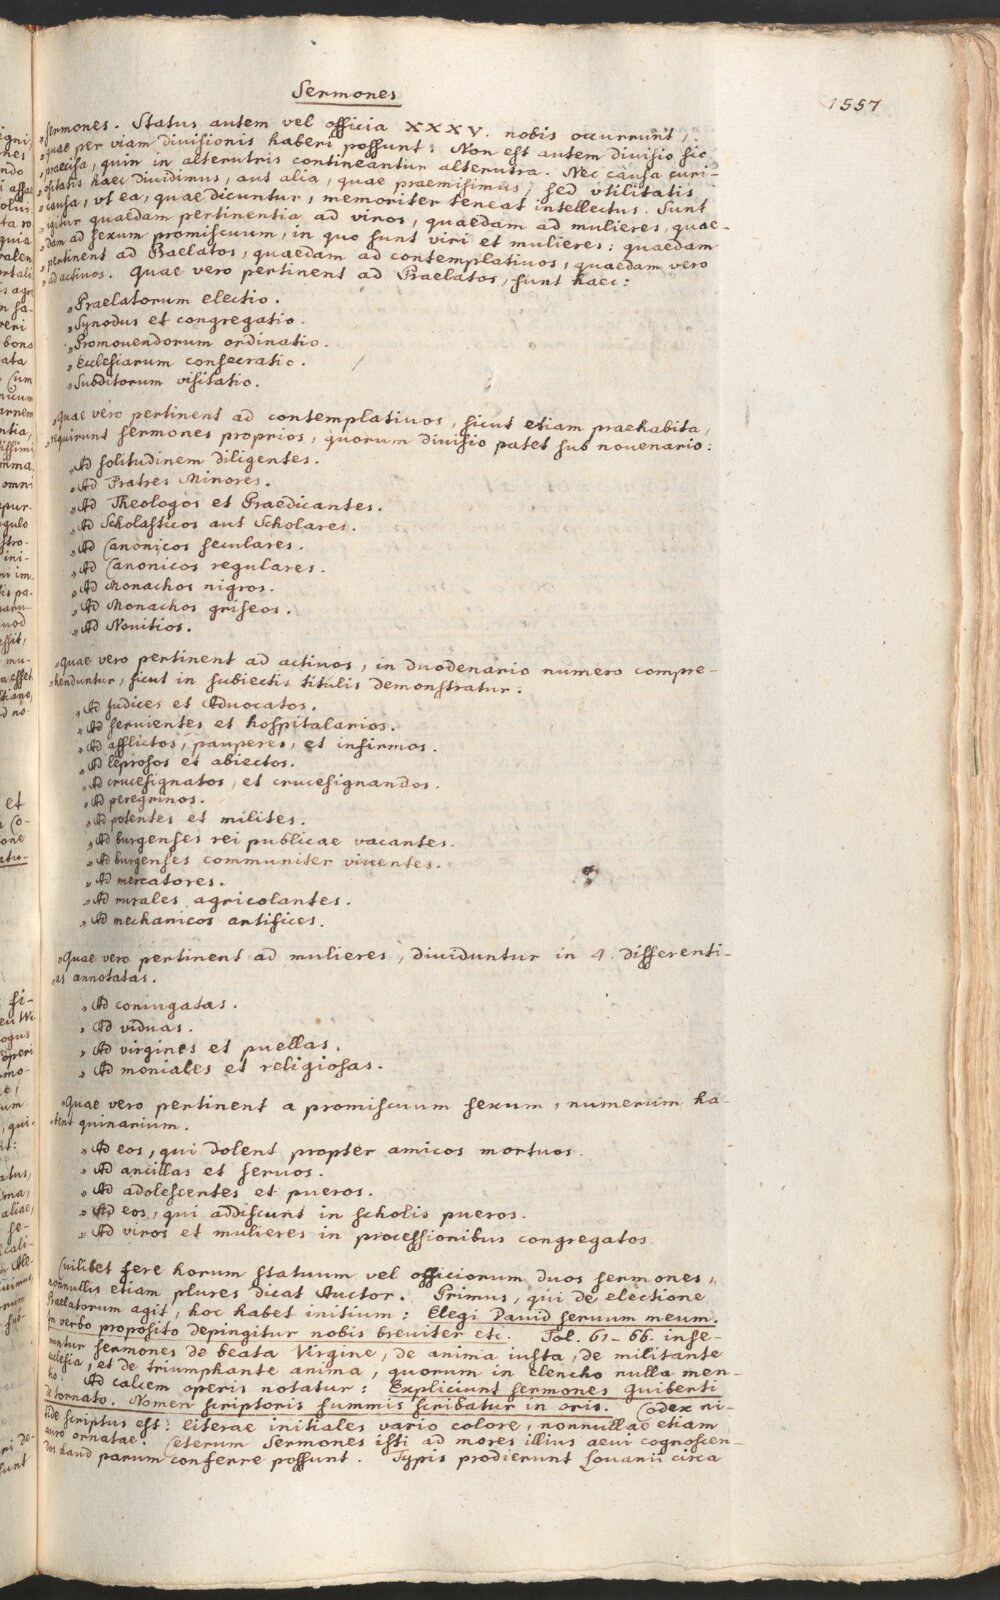 Sermones
1557
„sermones. Status autem vel officia XXXV. nobis occurrunt,
„quae per viam divisionis haberi possunt: Non est autem divisio sic
„praecisa, quin in alterutris contineantur alterutra. Nec causa curi-
„ositatis haec dividimus, aut alia, quae praemisimus, sed utilitatis
„causa, vt ea, quae dicuntur, memoriter teneat intellectus. Sunt
„igitur quaedam pertinentia ad viros, quaedam ad mulieres, quae-
„dam ad sexum promiscuum, in quo sunt viri et mulieres: quaedam
„pertinent ad Praelatos, quaedam ad contemplatiuos, quaedam vero
„ad actiuos. Quae vero pertinent ad Praelatos, sunt haec:
„Praelatorum electio.
„Synodus et congregatio.
„Promouendorum ordinatio.
„Ecclesiarum consecratio.
„Subditorum visitatio.
„Quae vero pertinent ad contemplatiuos, sicut etiam praehabita,
„requirunt sermones proprios, quorum divisio patet sub nouenario:
„Ad solitudinem diligentes.
„Ad Fratres Minores.
„Ad Theologos et Praedicantes.
„Ad Scholasticos aut Scholares.
„Ad Canonicos seculares.
„Ad Canonicos regulares.
„Ad Monachos nigros.
„Ad Monachos griseos.
„Ad Nouitios.
„Quae vero pertinent ad actiuos, in duodenario numero compre-
„henduntur, sicut in subiectis titulis demonstratur:
„Ad Judices et Aduocatos.
„Ad seruientes et hospitalarios.
„Ad afflictos, pauperes, et infirmos.
„Ad leprosos et abiectos.
„Ad crucesignatos, et crucesignandos.
„Ad peregrinos.
„Ad potentes et milites.
„Ad burgenses rei publicae vacantes.
„Ad burgenses communiter viuentes.
„Ad mercatores.
„Ad rurales agricolantes.
„Ad mechanicos artifices.
„Quae vero pertinent ad mulieres, diuiduntur in 4. differenti-
„as annotatas.
„Ad coniugatas.
„Ad viduas.
„Ad virgines et puellas.
„Ad moniales et religiosas.
„Quae vero pertinent a promiscuum sexum, numerum ha-
„bent quinarium.
„Ad eos, qui dolent propter amicos mortuos.
„Ad ancillas et seruos.
„Ad adolescentes et pueros.
„Ad eos, qui addiscunt in scholis pueros.
„Ad viros et mulieres in processionibus congregatos.
Cuilibet fere horum statuum vel officiorum duos sermones,
nonnullis etiam plures dicat Auctor. Primus, qui de electione
Praelatorum agit, hoc habet initium: Elegi Dauid seruum meum.
In verbo proposito depingitur nobis breuiter etc. Fol. 61-66. inse-
runtur sermones de beata Virgine, de anima iusta, de militante
ecclesia, et de triumphante anima, quorum in elencho nulla men-
tio. Ad calcem operis notatur: Expliciunt sermones Guiberti
de tornaco. Nomen scriptoris summis scribatur in oris. Codex ni-
tide scriptus est: literae initiales vario colore, nonnullae etiam
auro ornatae. Ceterum Sermones isti ad mores illius aeui cognoscen-
dos haud parum conferre possunt. Typis prodierunt Louanii circa